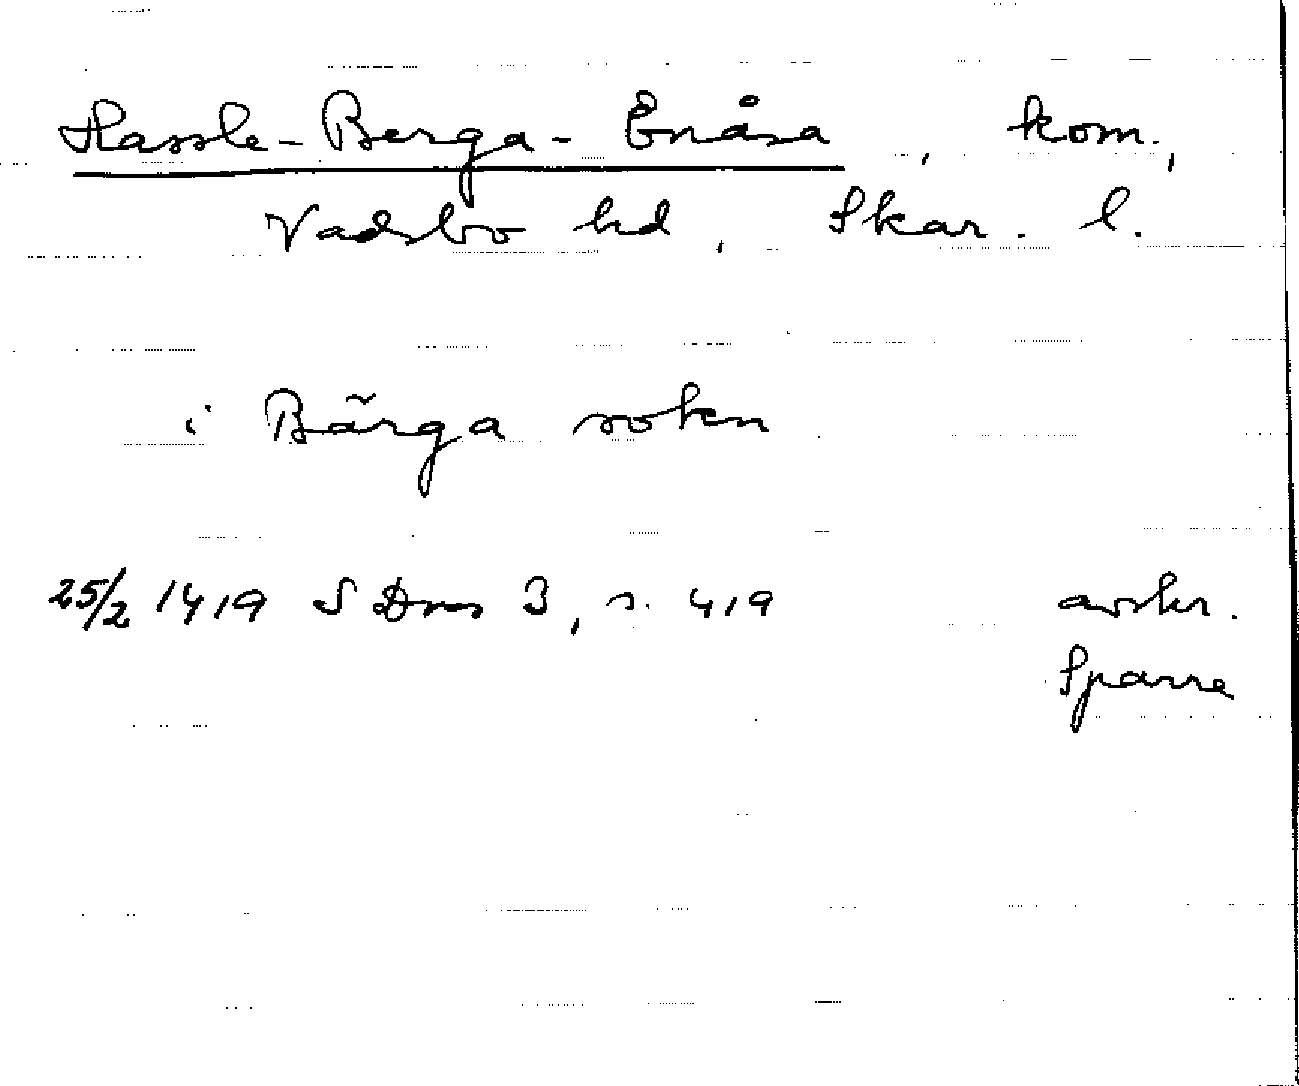 Hassle-Berga-Enåsa, kom.,
Vadsbo hd, Skar. l.
i Bärga sokn
25/2 1419 S Dns 3, s. 419 avskr.
Sparre